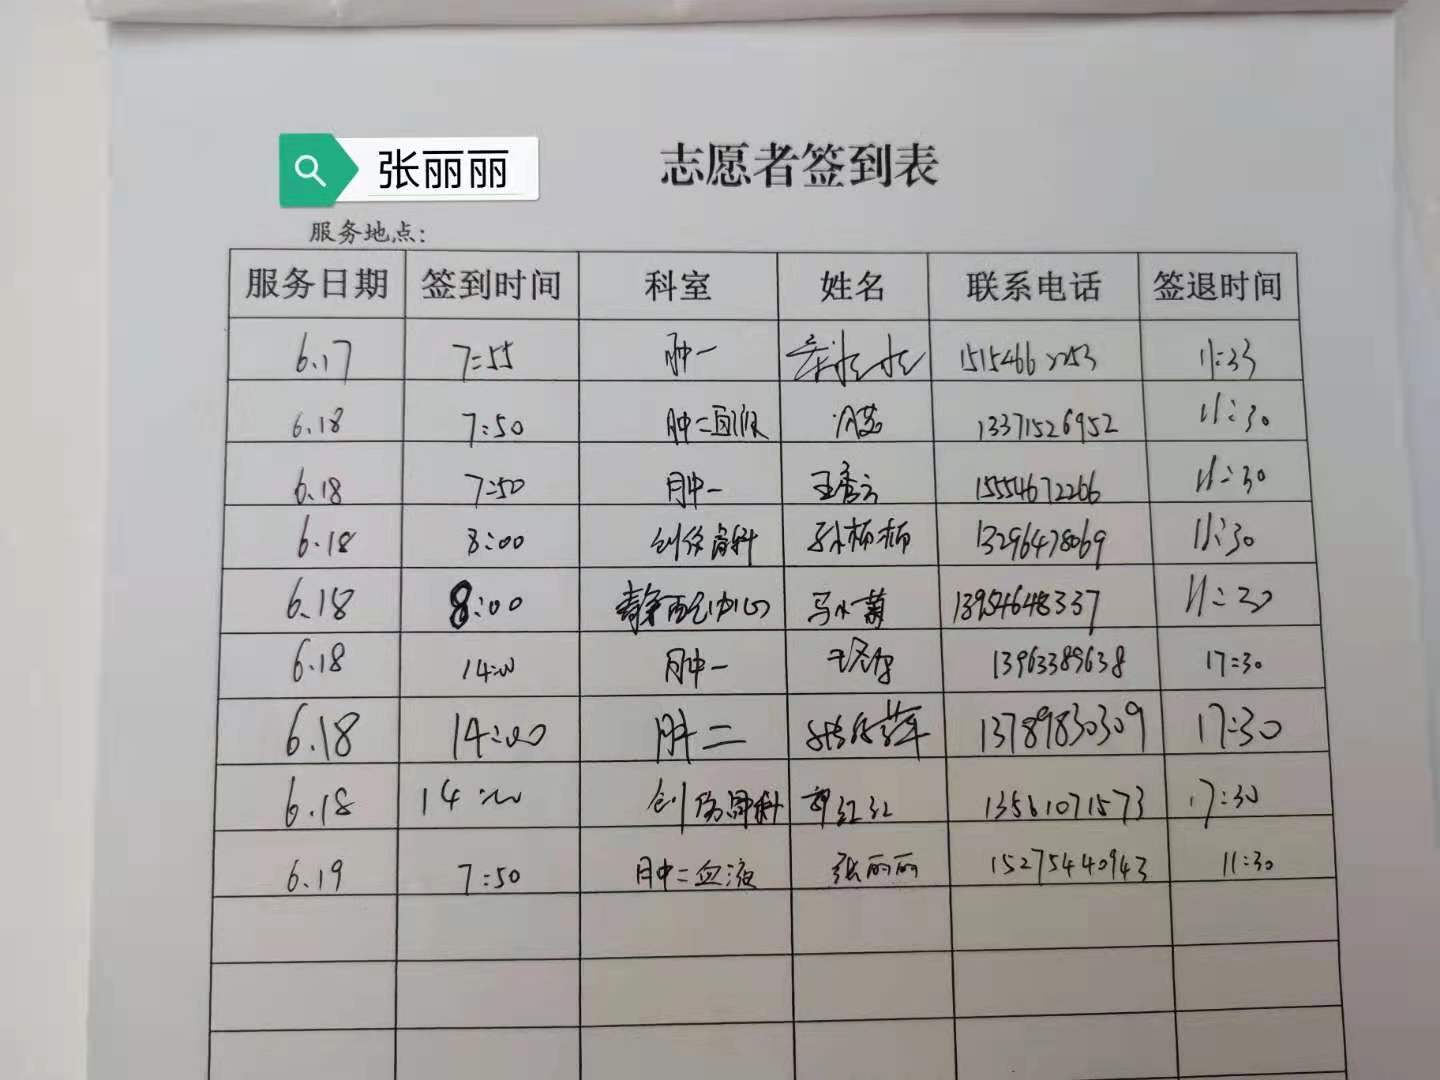 张丽丽
志愿者签到表
服务地点:
服务日期 签到时间 科室 姓名 联系电话 签退时间
6.17 7:55 肿一 11:33
6.18 7:50 肿二血液 13371526952 11:30
6.18 7:50 肿一 王秀云 15554672266 11:30
6.18 8:00 创伤骨科 孙杨杨 13296478069 11:30
6.18 8:00 静配中心 马小菊 13954648337 11:30
6.18 14:00 肿一 13963389638 17:30
6.18 14:00 肿二 13789830309 17:30
6.18 14:00 创伤骨科 郭红红 13561071573 17:30
6.19 7:50 肿二血液 张丽丽 15275440943 11:30